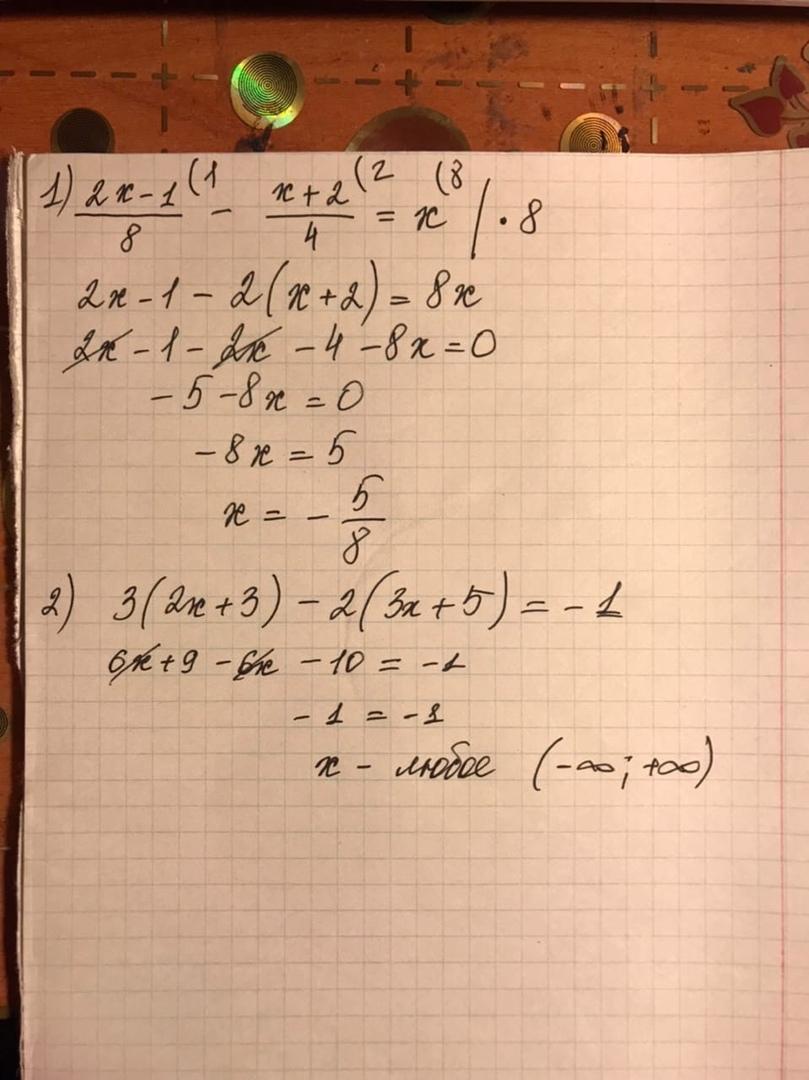 1) (2x-1)/8 (1 - (x+2)/4 (2 = x (8 | · 8
2x - 1 - 2(x+2) = 8x
2x - 1 - 2x - 4 - 8x = 0
- 5 - 8x = 0
- 8x = 5
x = - 5/8
2) 3(2x+3) - 2(3x+5) = - 1
6x + 9 - 6x - 10 = -1
- 1 = -1
x - любое (-∞; +∞)